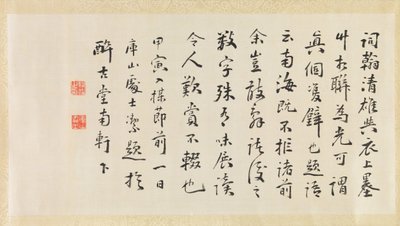 詞翰清雄與衣上墨
竹聯為光可謂
真個雙璧也題語
云南海既不拒諸前
余豈敢辭諸後之
数字殊有味展讀
令人歎賞不輟也
甲寅禊節前一日
山處士潔題於
醉古堂南軒下